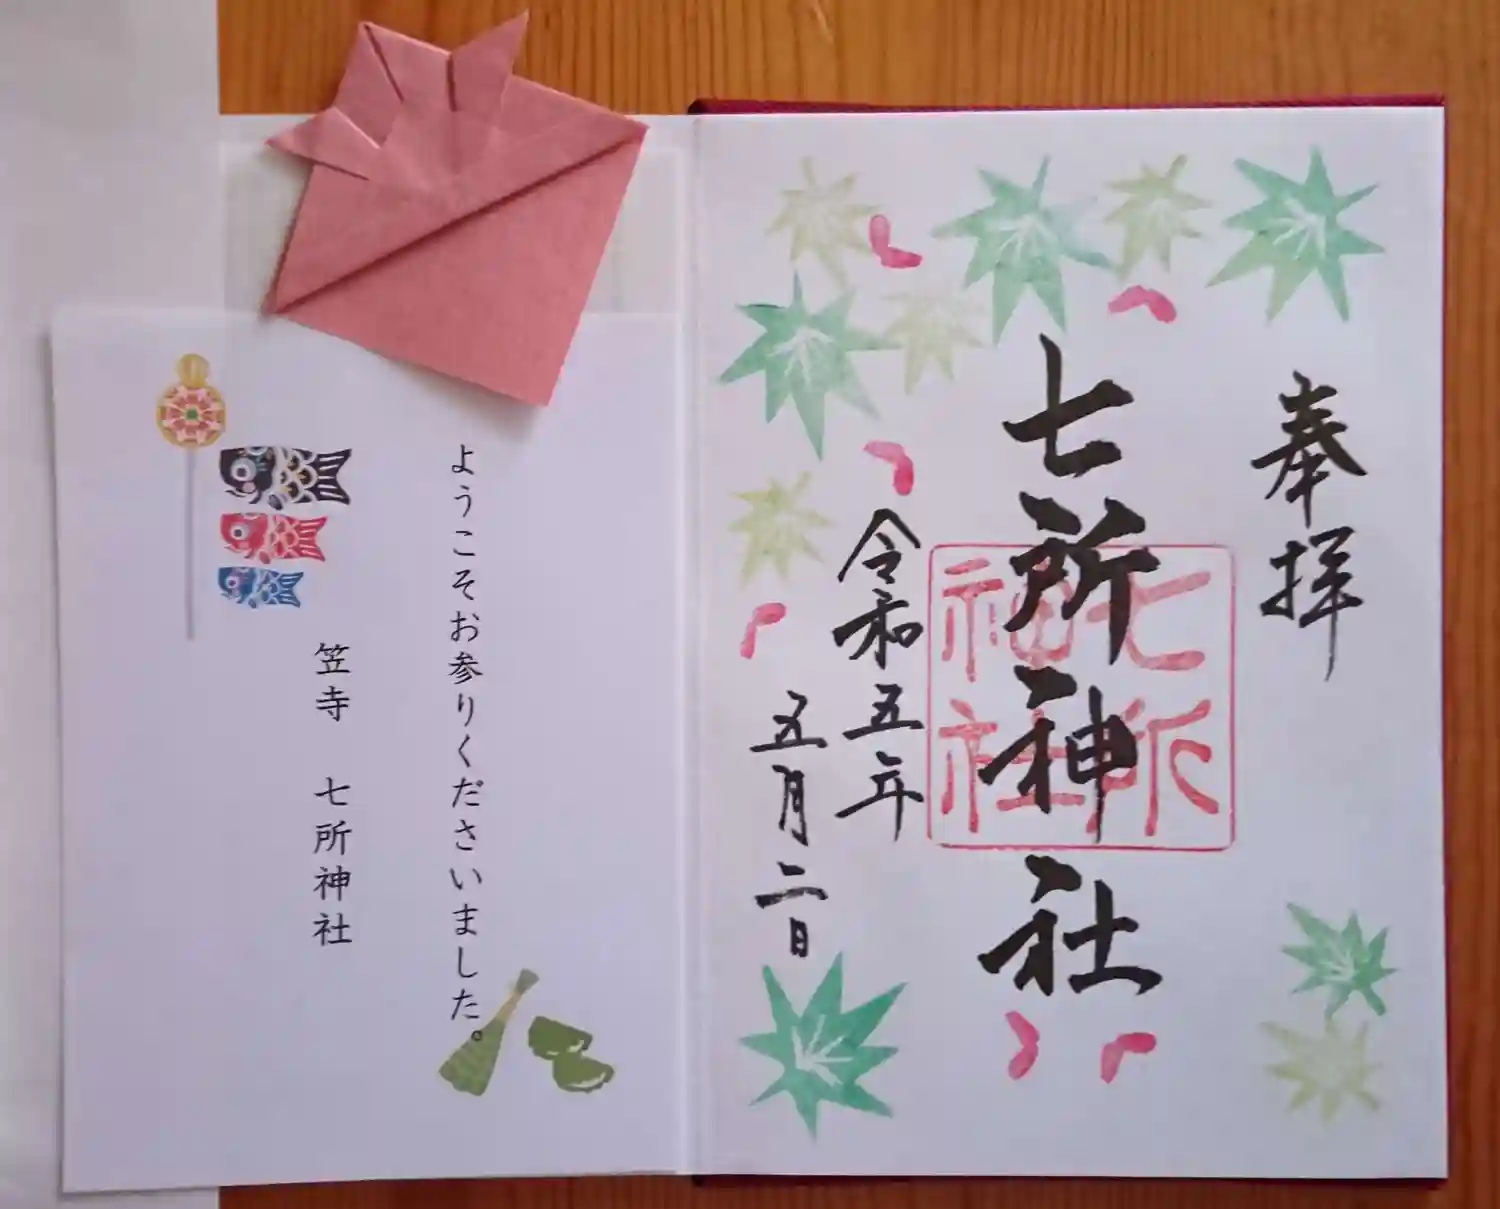 奉拝
七所神社
七所
神社
令和五年
五月二日
ようこそお参りくださいました。
笠寺　七所神社